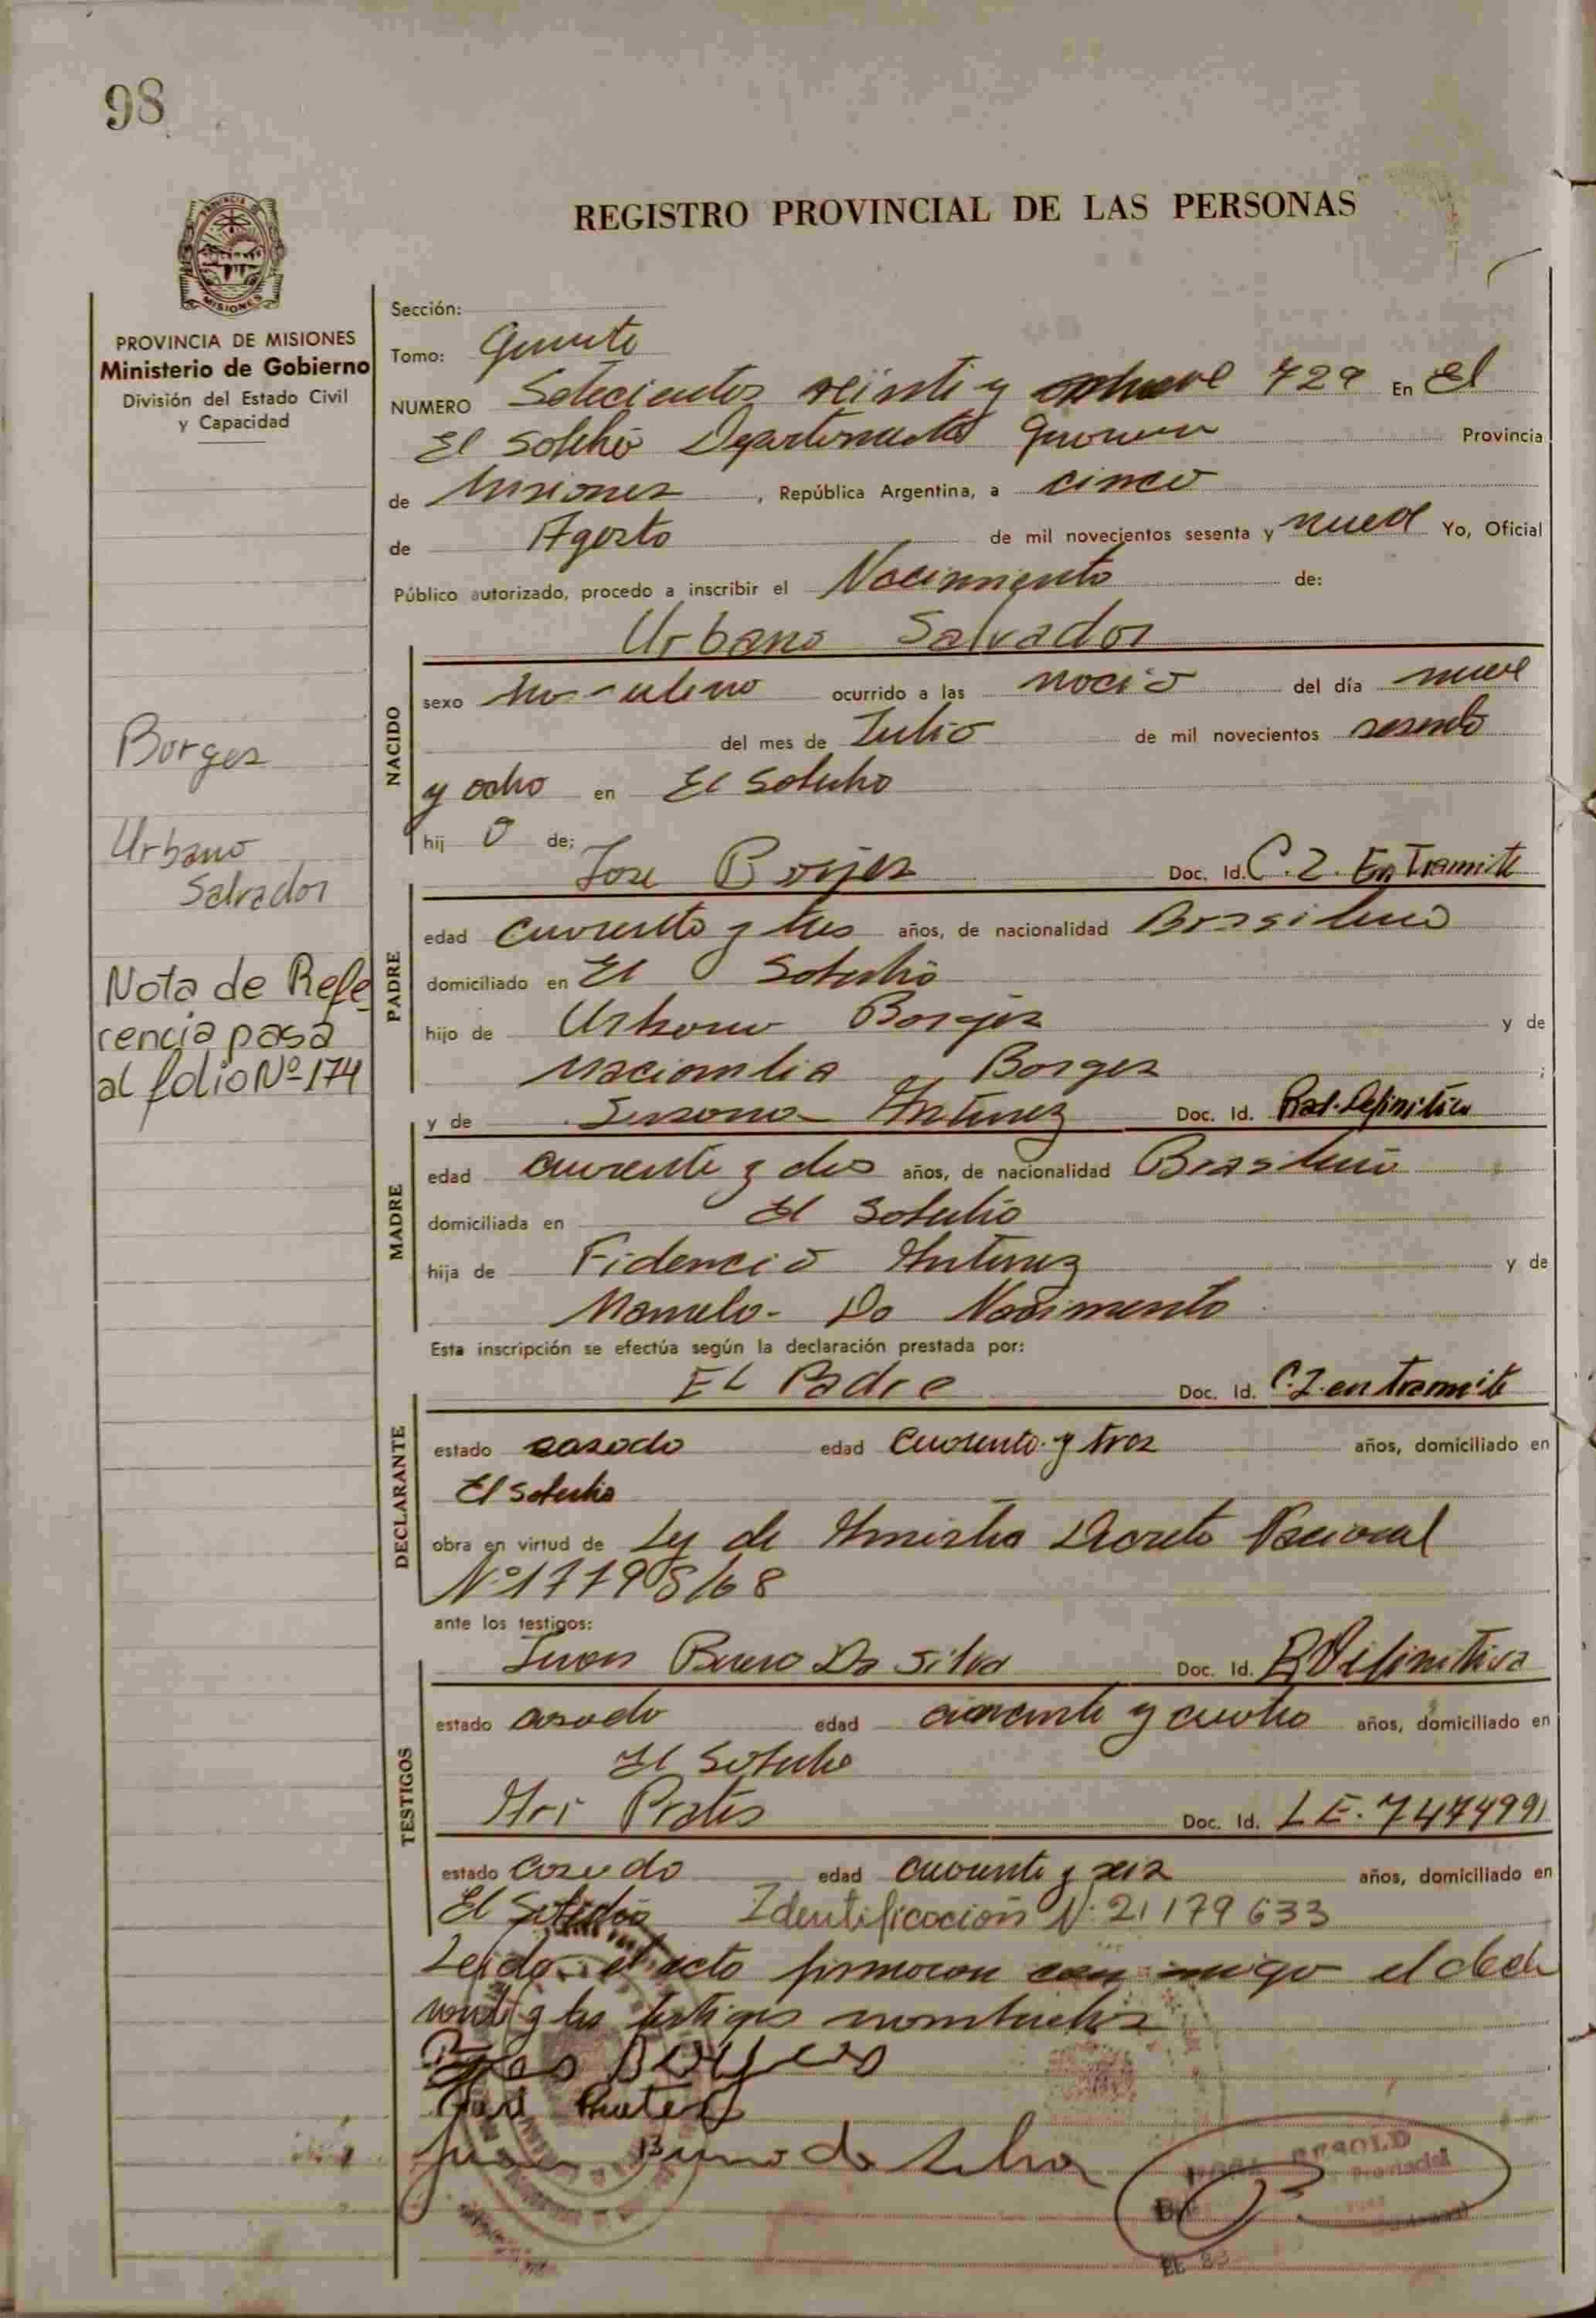 98
REGISTRO PROVINCIAL DE LAS PERSONAS
PROVINCIA DE MISIONES
Ministerio de Gobierno
División del Estado Civil
y Capacidad
Sección:
Tomo: Quinto
NUMERO Setecientos veinti y nueve 729 En El
El Soberbio Departamento Guarani Provincia
de Misiones, República Argentina, a cinco
de Agosto de mil novecientos sesenta y nueve Yo, Oficial
Público autorizado, procedo a inscribir el Nacimiento de:
Urbano Salvador
NACIDO
sexo Masculino ocurrido a las del día nueve
del mes de Julio de mil novecientos sesenta
y ocho en El Soberbio
hij o de;
Borges
Urbano
Salvador
Nota de Refe
rencia pasa
al folio Nº 174
Jose Borjes Doc. Id. C.I. En Tramite
PADRE
edad cuarenta y tres años, de nacionalidad Brasilero
domiciliado en El Soberbio
hijo de Urbano Borges y de
Borges ;
y de Antunez Doc. Id. Rad. Definitiva
MADRE
edad cuarenta y dos años, de nacionalidad Brasilera
domiciliada en El Soberbio
hija de Fidencio Antunez y de
Manuela Do Nacimento
Esta inscripción se efectúa según la declaración prestada por:
EL Padre Doc. Id. C.I. en tramite
DECLARANTE
estado casado edad cuarenta y tres años, domiciliado en
El Soberbio
obra en virtud de Ley de Amnistia Decreto Nacional
Nº 17795/68
ante los testigos:
Juan Bueno Da Silva Doc. Id. R Definitiva
TESTIGOS
estado casado edad y cuatro años, domiciliado en
El Soberbio
Ari Prates Doc. Id. L E. 7474991
estado casado edad cuarenta y seis años, domiciliado en
El Soberbio Identificacion N: 21179633
Leido el acto firmaron con migo el decla
rante y los testigos nombrados
Borges
Ari Prates
Juan Bueno da Silva